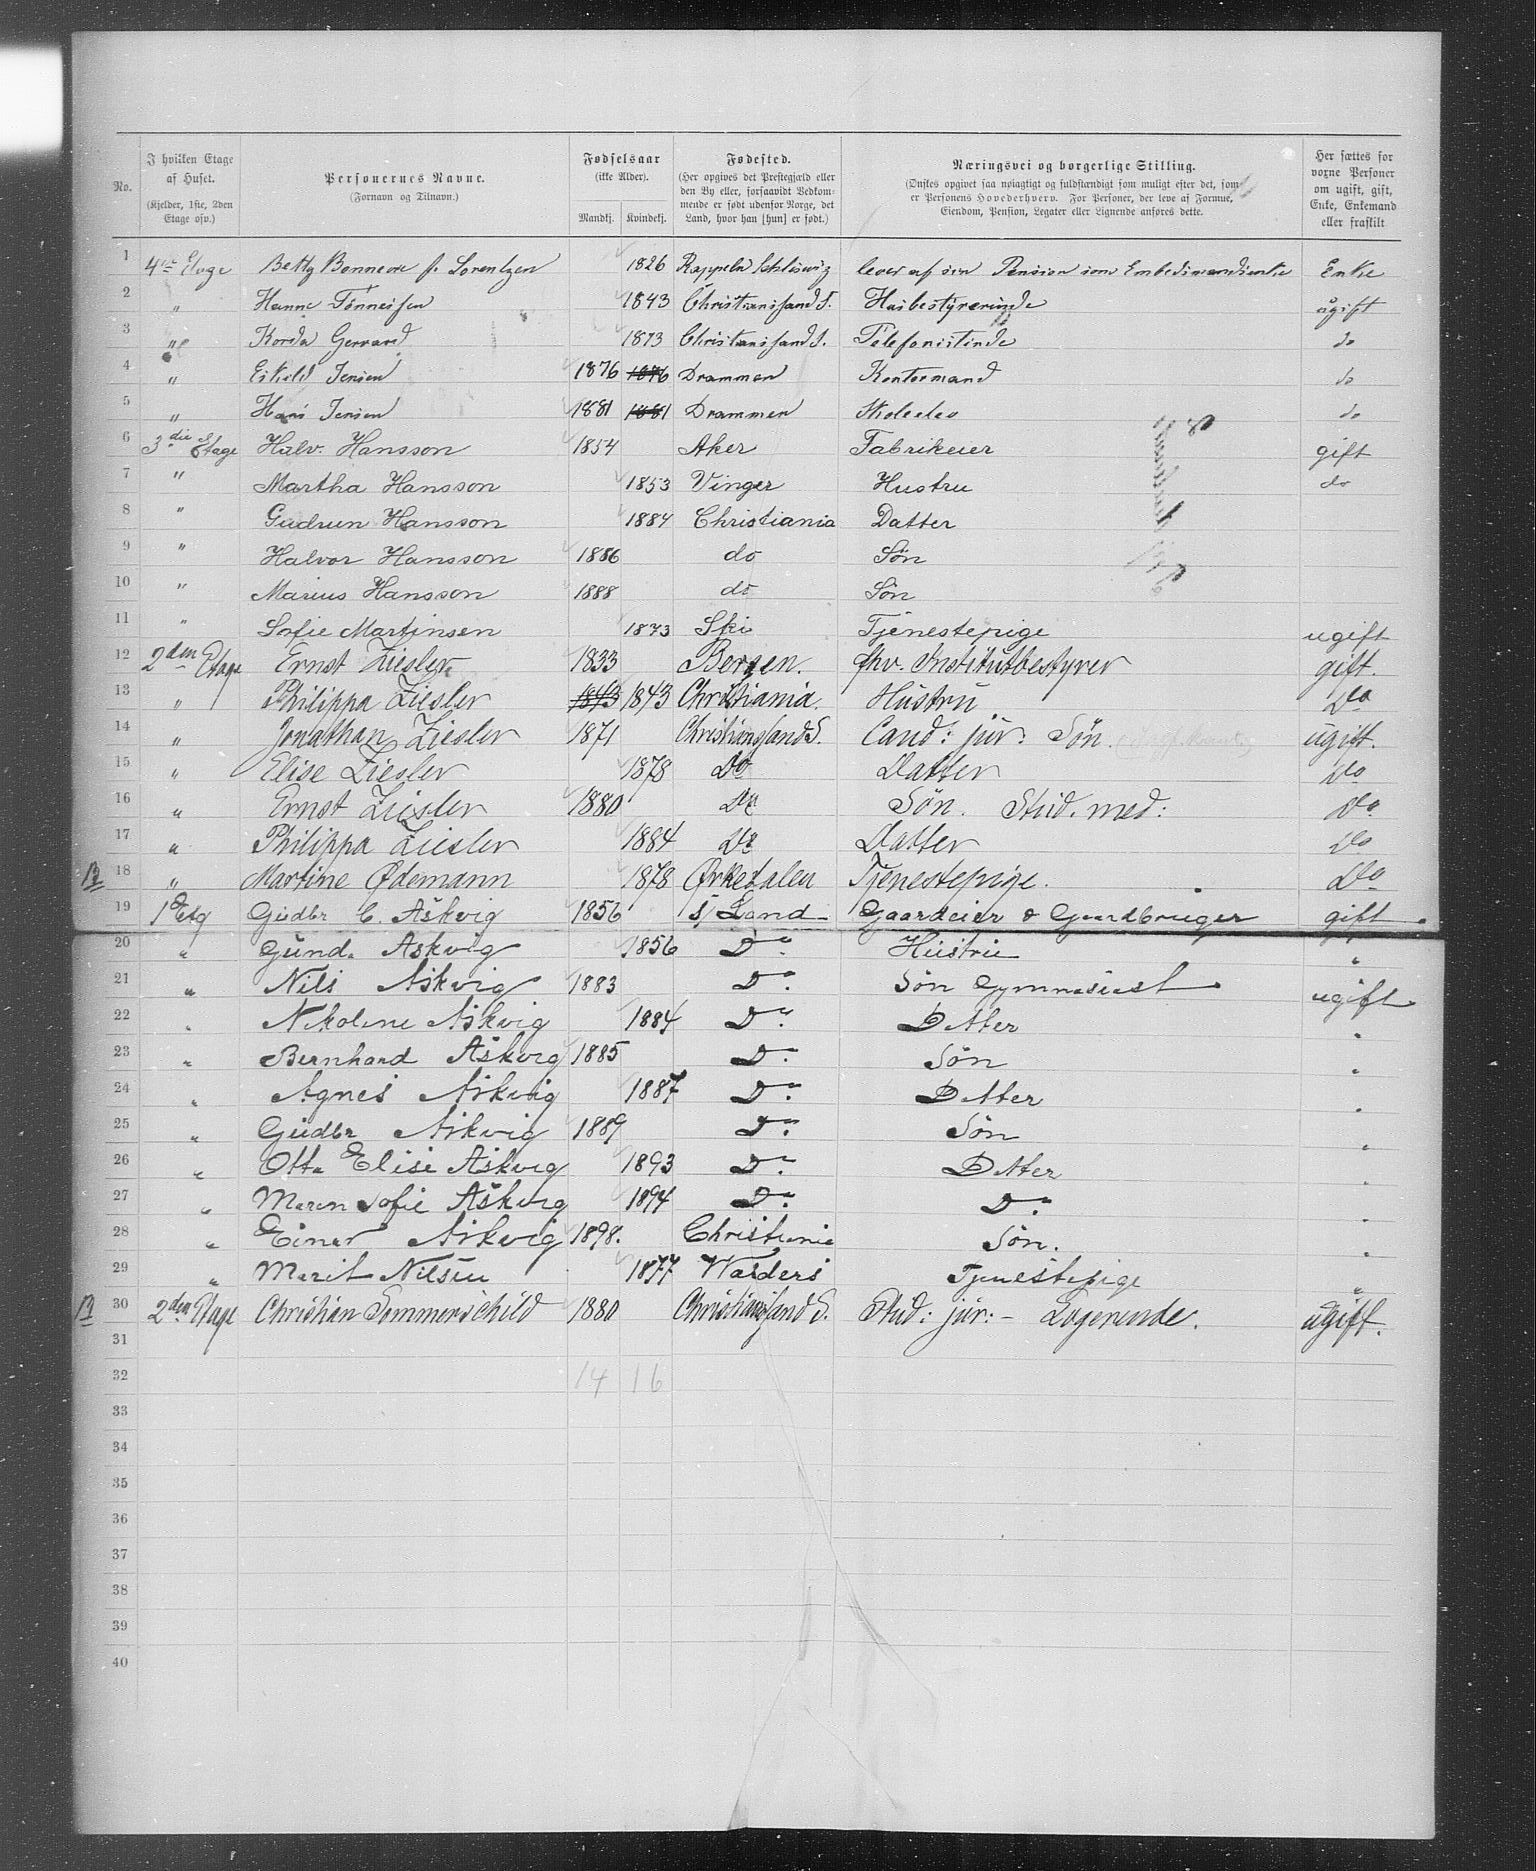 No. | I hvilken Etage af Huset. (Kjelder, 1ste, 2den Etage osv.) | Personernes Navne. (Fornavn og Tilnavn.) | Fødselsaar (ikke Alder). Mandkj. Kvindekj. | Fødested. (Her opgives det Prestegjæld eller den By eller, forsaavidt Vedkommende er født udenfor Norge, det Land, hvor han [hun] er født.) | Næringsvei og borgerlige Stilling. (Ønskes opgivet saa nøiagtigt og fuldstændigt som muligt efter det, som er Personens Hovederhverv. For Personer, der leve af Formue, Eiendom, Pension, Legater eller Lignende anføres dette. | Her sættes for voxne Personer om ugift, gift, Enke, Enkemand eller fraskilt
1 4de Etage Betty Bonnevie f. Lorentzen 1826 Kappeln Schleswig lever af sin Pension som Embedsmandsenke Enke
2 " Hanne Tønnessen 1843 Christianssand S. Husbestyrerinde ugift
3 " Korda Gerrard 1873 Christianssand S. Telefonistinde do
4 " Eskild Jensen 1876 1876 Drammen Kontormand do
5 " Hans Jensen 1881 1881 Drammen Skoleelev do
6 3die Etage Halv. Hansson 1854 Aker Fabrikeier gift
7 " Martha Hansson 1853 Vinger Hustru do
8 " Gudrun Hansson 1884 Christiania Datter
9 " Halvor Hansson 1886 do Søn
10 " Marius Hansson 1888 do Søn
11 " Sofie Martinsen 1873 Ski Tjenestepige ugift
12 2den Etage Ernst Ziesler 1833 Bergen. fhv. Institutbestyrer gift.
13 " Philippa Ziesler 1843 1843 Christiania. Hustru Do
14 " Jonathan Ziesler 1871 Christianssand S. Cand: jur: Søn. ugift.
15 " Elise Ziesler 1878 Do Datter Do
16 " Ernst Ziesler 1880 Do Søn. Stud. med: Do
17 " Philippa Ziesler 1884 Do Datter Do
18 " Martine Ødemann 1878 Ørkedalen Tjenestepige. Do
19 1 Etg Gudbr C. Askvig 1856 S/ Land - Gaardeier & Gaardbruger gift.
20 " Gund. Askvig 1856 Do. Hustru "
21 " Nils Askvig 1883 Do. Søn Gymnasiast ugift
22 " Nikoline Askvig 1884 Do. Datter "
23 " Bernhard Askvig 1885 Do. Søn "
24 " Agnes Askvig 1887 Do. Datter "
25 " Gudbr Askvig 1889 Do. Søn "
26 " Otta Elise Askvig 1893 Do. Datter "
27 " Maren Sofie Askvig 1894 Do. Do "
28 " Einar Askvig 1898. Christiania Søn. "
29 " Marit Nilsen 1877 Walders Tjenestepige "
30 2den Etage Christian Sommerschild 1880 Christianssand S. Stud: jur: - Logerende. ugift.
31
32 14 16
33
34
35
36
37
38
39
40